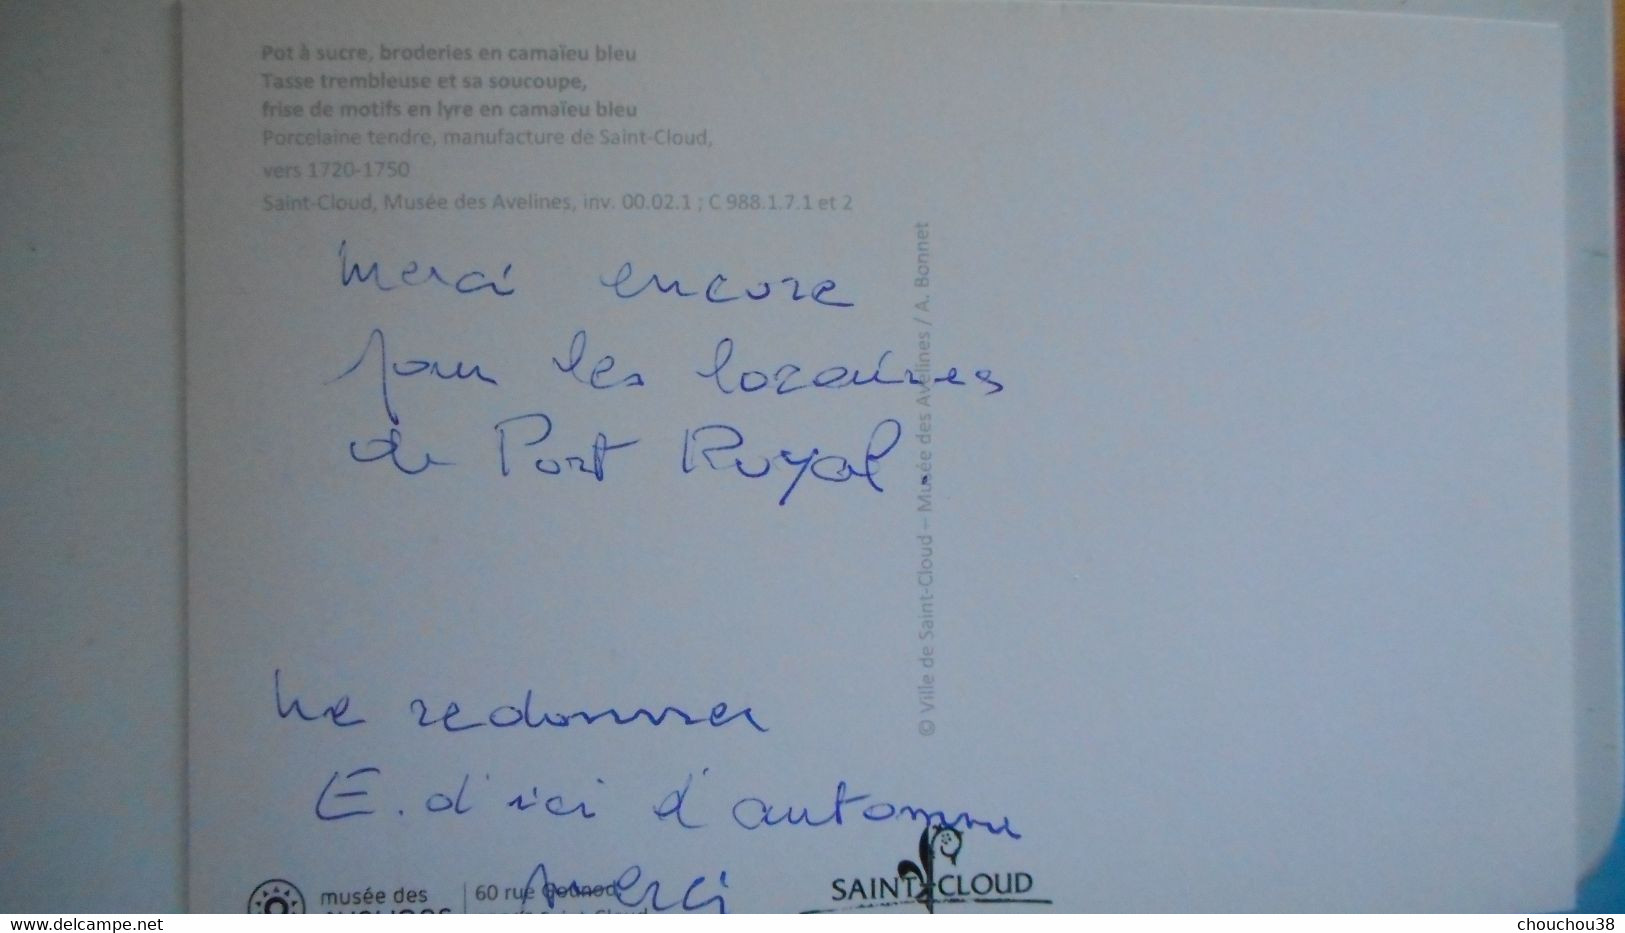 Pot à sucre, broderies en camaïeu bleu
Tasse trembleuse et sa soucoupe,
frise de motifs en lyre en camaïeu bleu
Porcelaine tendre, manufacture de Saint-Cloud,
vers 1720-1750
Saint-Cloud, Musée des Avelines, inv. 00.02.1 ; C 988.1.7.1 et 2
© Ville de Saint-Cloud – Musée des Avelines / A. Bonnet
Merci encore
pour les
de Port Royal.
redonner
E. d'ici d'automne
merci
musée des
60 rue Gounod
SAINT CLOUD
delcampe.net
chouchou38